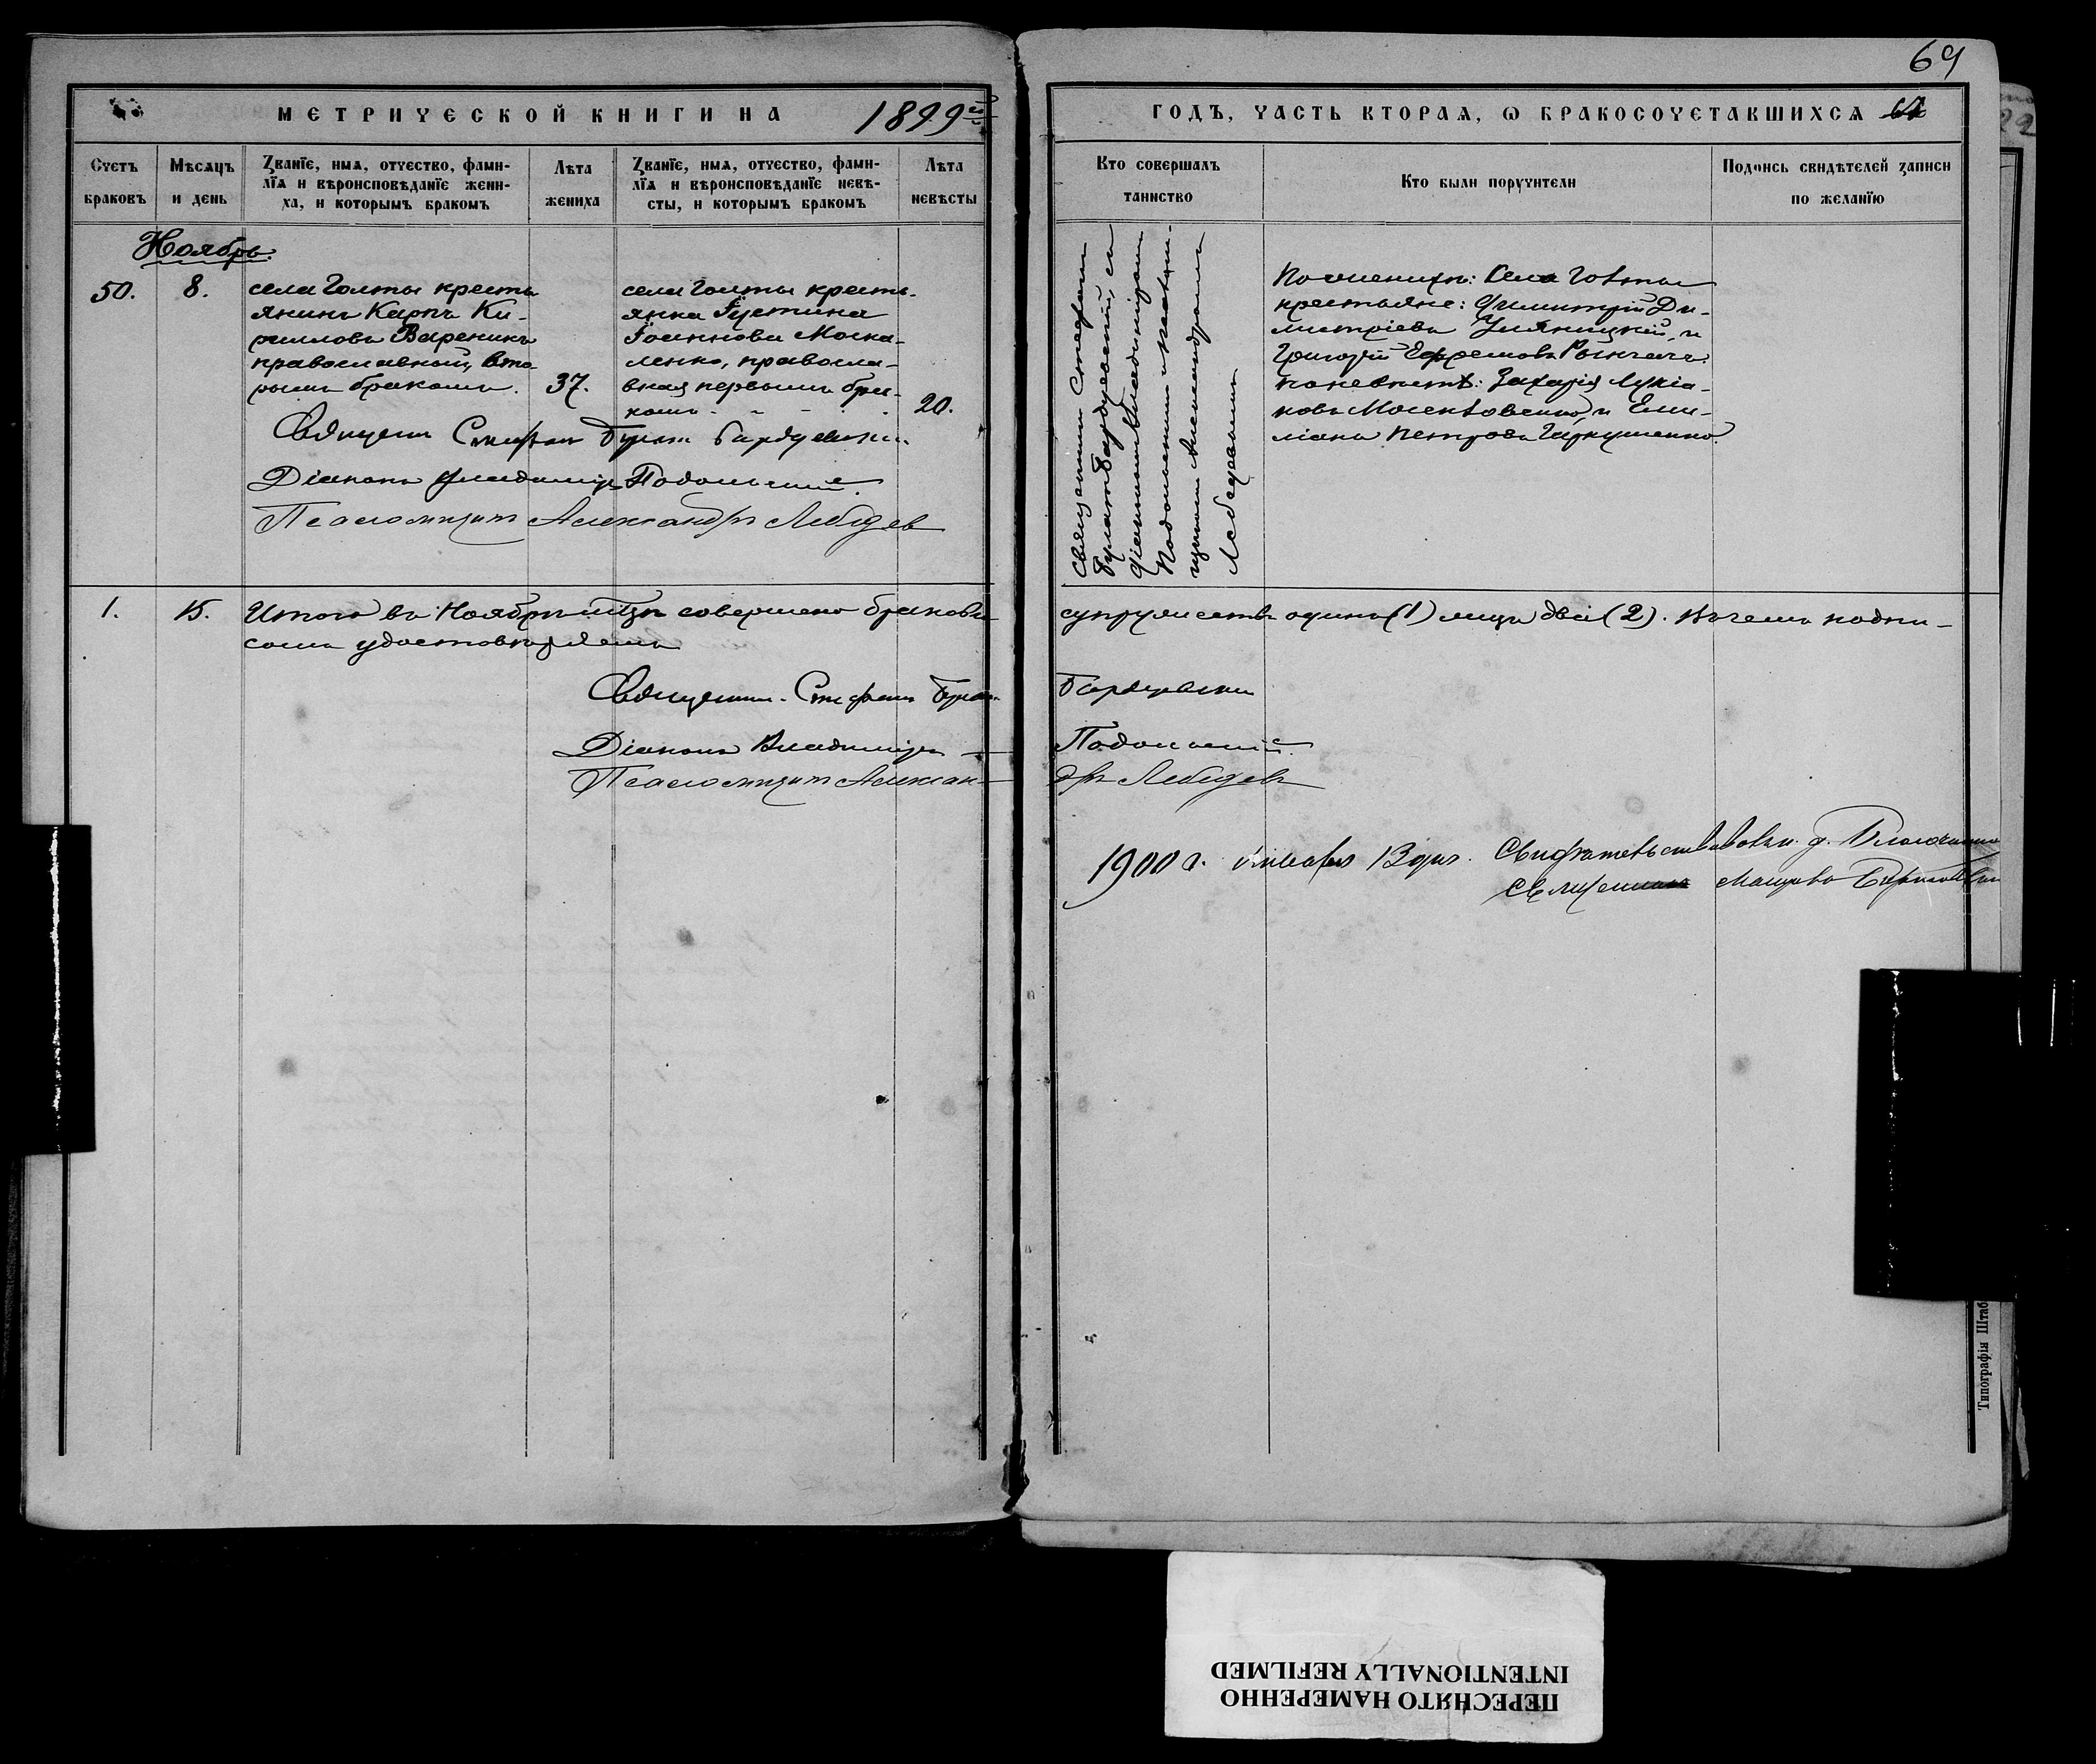 69
МЕТРИЧЕСКОЙ КНИГИ НА 1899й
ГОДЪ, ЧАСТЬ ВТОРАЯ, Ѡ БРАКОСОЧЕТАВШИХСЯ
Счетъ браковъ
Мѣсяцъ и день
Званїе, имя, отчество, фами-
лїя и вѣроисповѣданїе жени-
ха, и которымъ бракомъ
Лѣта жениха
Званїе, имя, отчество, фами-
лїя и вѣроисповѣданїе невѣ-
сты, и которымъ бракомъ
Лѣта невѣсты
Кто совершалъ таинство
Кто были поручители
Подпись свидѣтелей записи по желанїю
Ноябрь.
50.
8.
села Голты кресть
янинъ Карпъ Ки-
рилловъ Вареникъ
православный, вто
рымъ бракомъ.
37.
села Голты кресть-
янка Іустина
Іоаннова Моска-
ленко, правосла-
вная первымъ бра-
комъ
20.
Священникъ Стефанъ
Діаконъ Владиміръ
Подольскій и псаломщ-
икомъ Александромъ
Лебедевымъ
По женихѣ: села Голты
крестьяне: Димитрій Ди-
митріевъ и
Григорій Ефремовъ
по невѣстѣ: Захарія Лукіа-
новъ и Еми-
ліанъ Петровъ Гаркушенко.
Священ. Стефанъ
Діаконъ Владиміръ Подольскій.
Псаломщикъ Александръ Лебедев
1.
15.
Итого въ Ноябрѣ м-цѣ совершено браковъ
супружествъ одинъ (1) лицъ два (2). Въ чемъ подпи-
сомъ удостовѣряемъ
Священник. Стефанъ
Діаконъ Владиміръ Подольскій.
Псаломщикъ Александръ Лебедевъ
1900 г. января 13 дня. Свидѣтельствовалъ
Священникъ
Типографія Штаб
ПЕРЕСНЯТО НАМЕРЕННО
INTENTIONALLY REFILMED